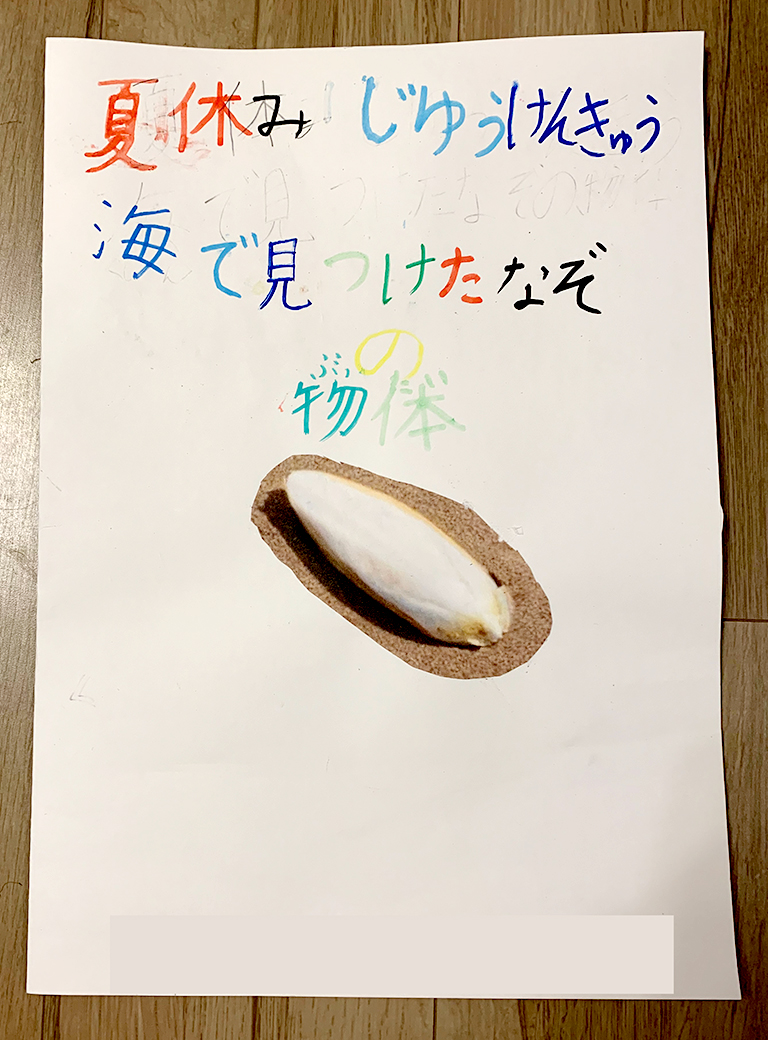 夏休み じゆうけんきゅう
海で見つけたなぞ
の
ぶっ
物体